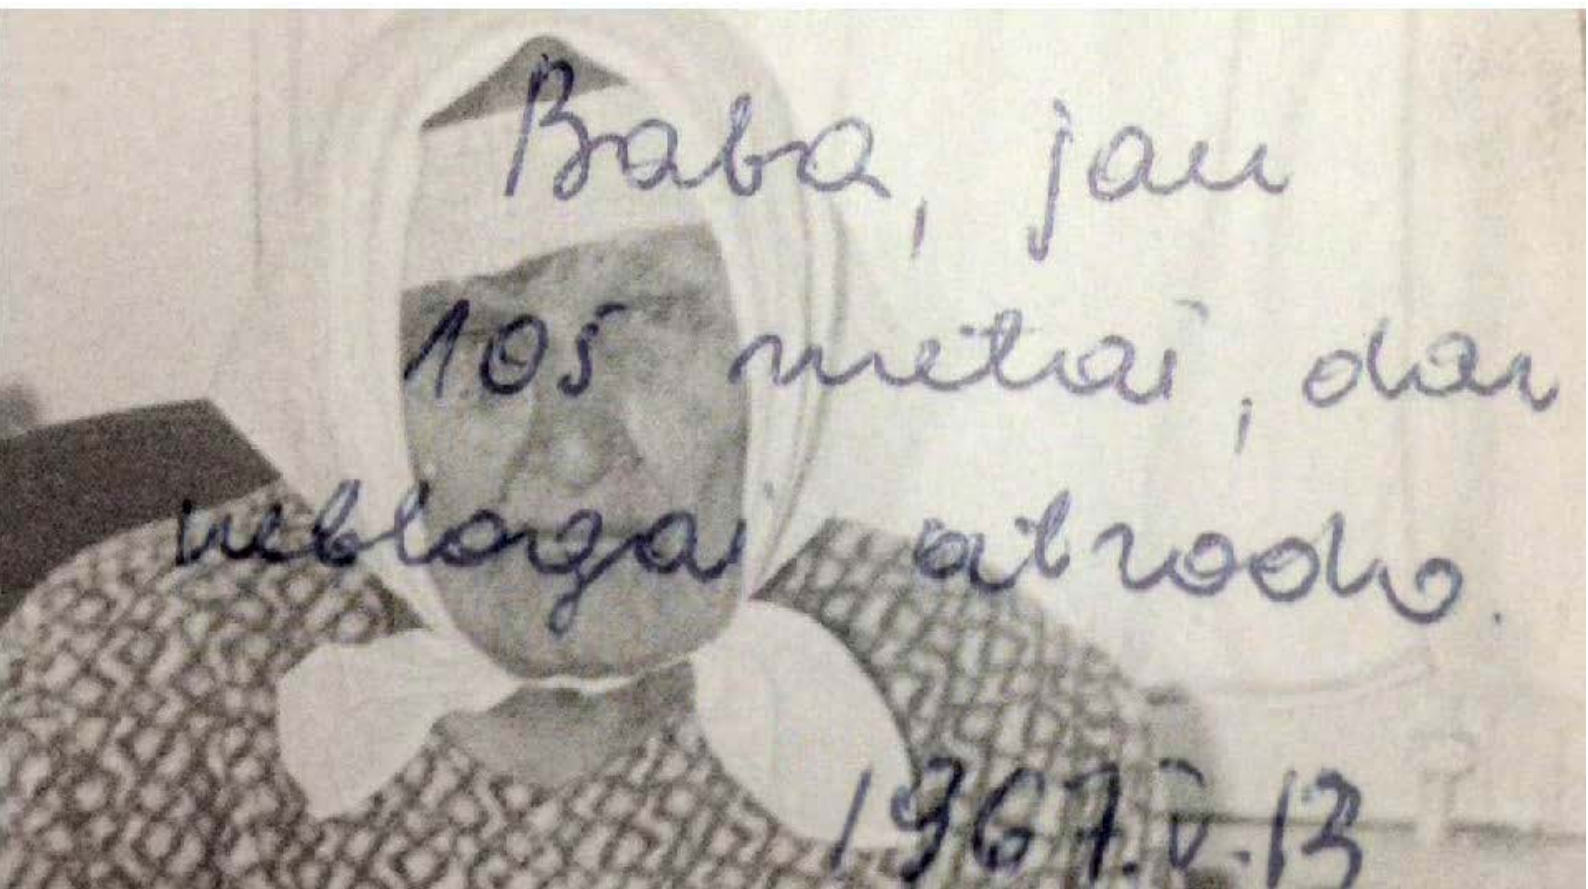 Baba, jau
105 metai, dar
neblogai atrodo.
1967.V.13